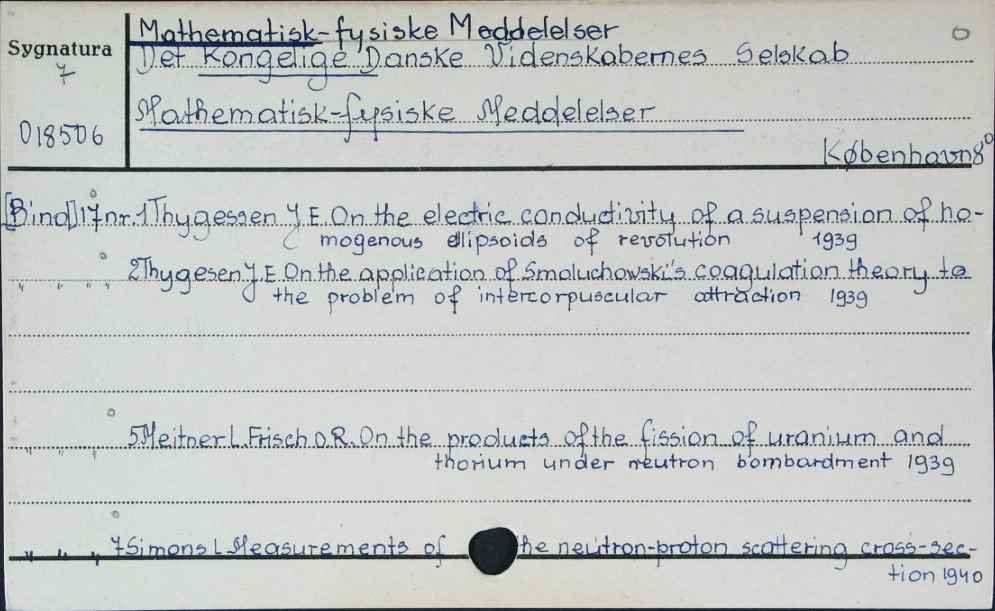 Mathematisk-fysiske Meddelelser
Sygnatura
7
Det Kongelige Danske Videnskabernes Selskab
018506
Mathematisk-fysiske Meddelelser
København 8°
[Bind] 17 nr. 1 Thygessen J. E. On the electric conductivity of a suspension of ho-
mogenous ellipsoids of revolution 1939
" " " " 2 Thygesen J. E. On the application of Smoluchowski's coagulation theory to
the problem of intercorpuscular attraction 1939
" " " 5 Meitner L. Frisch O.R. On the products of the fission of uranium and
thorium under neutron bombardment 1939
" " " 7 Simons L. Measurements of the neutron-proton scattering cross-sec-
tion 1940